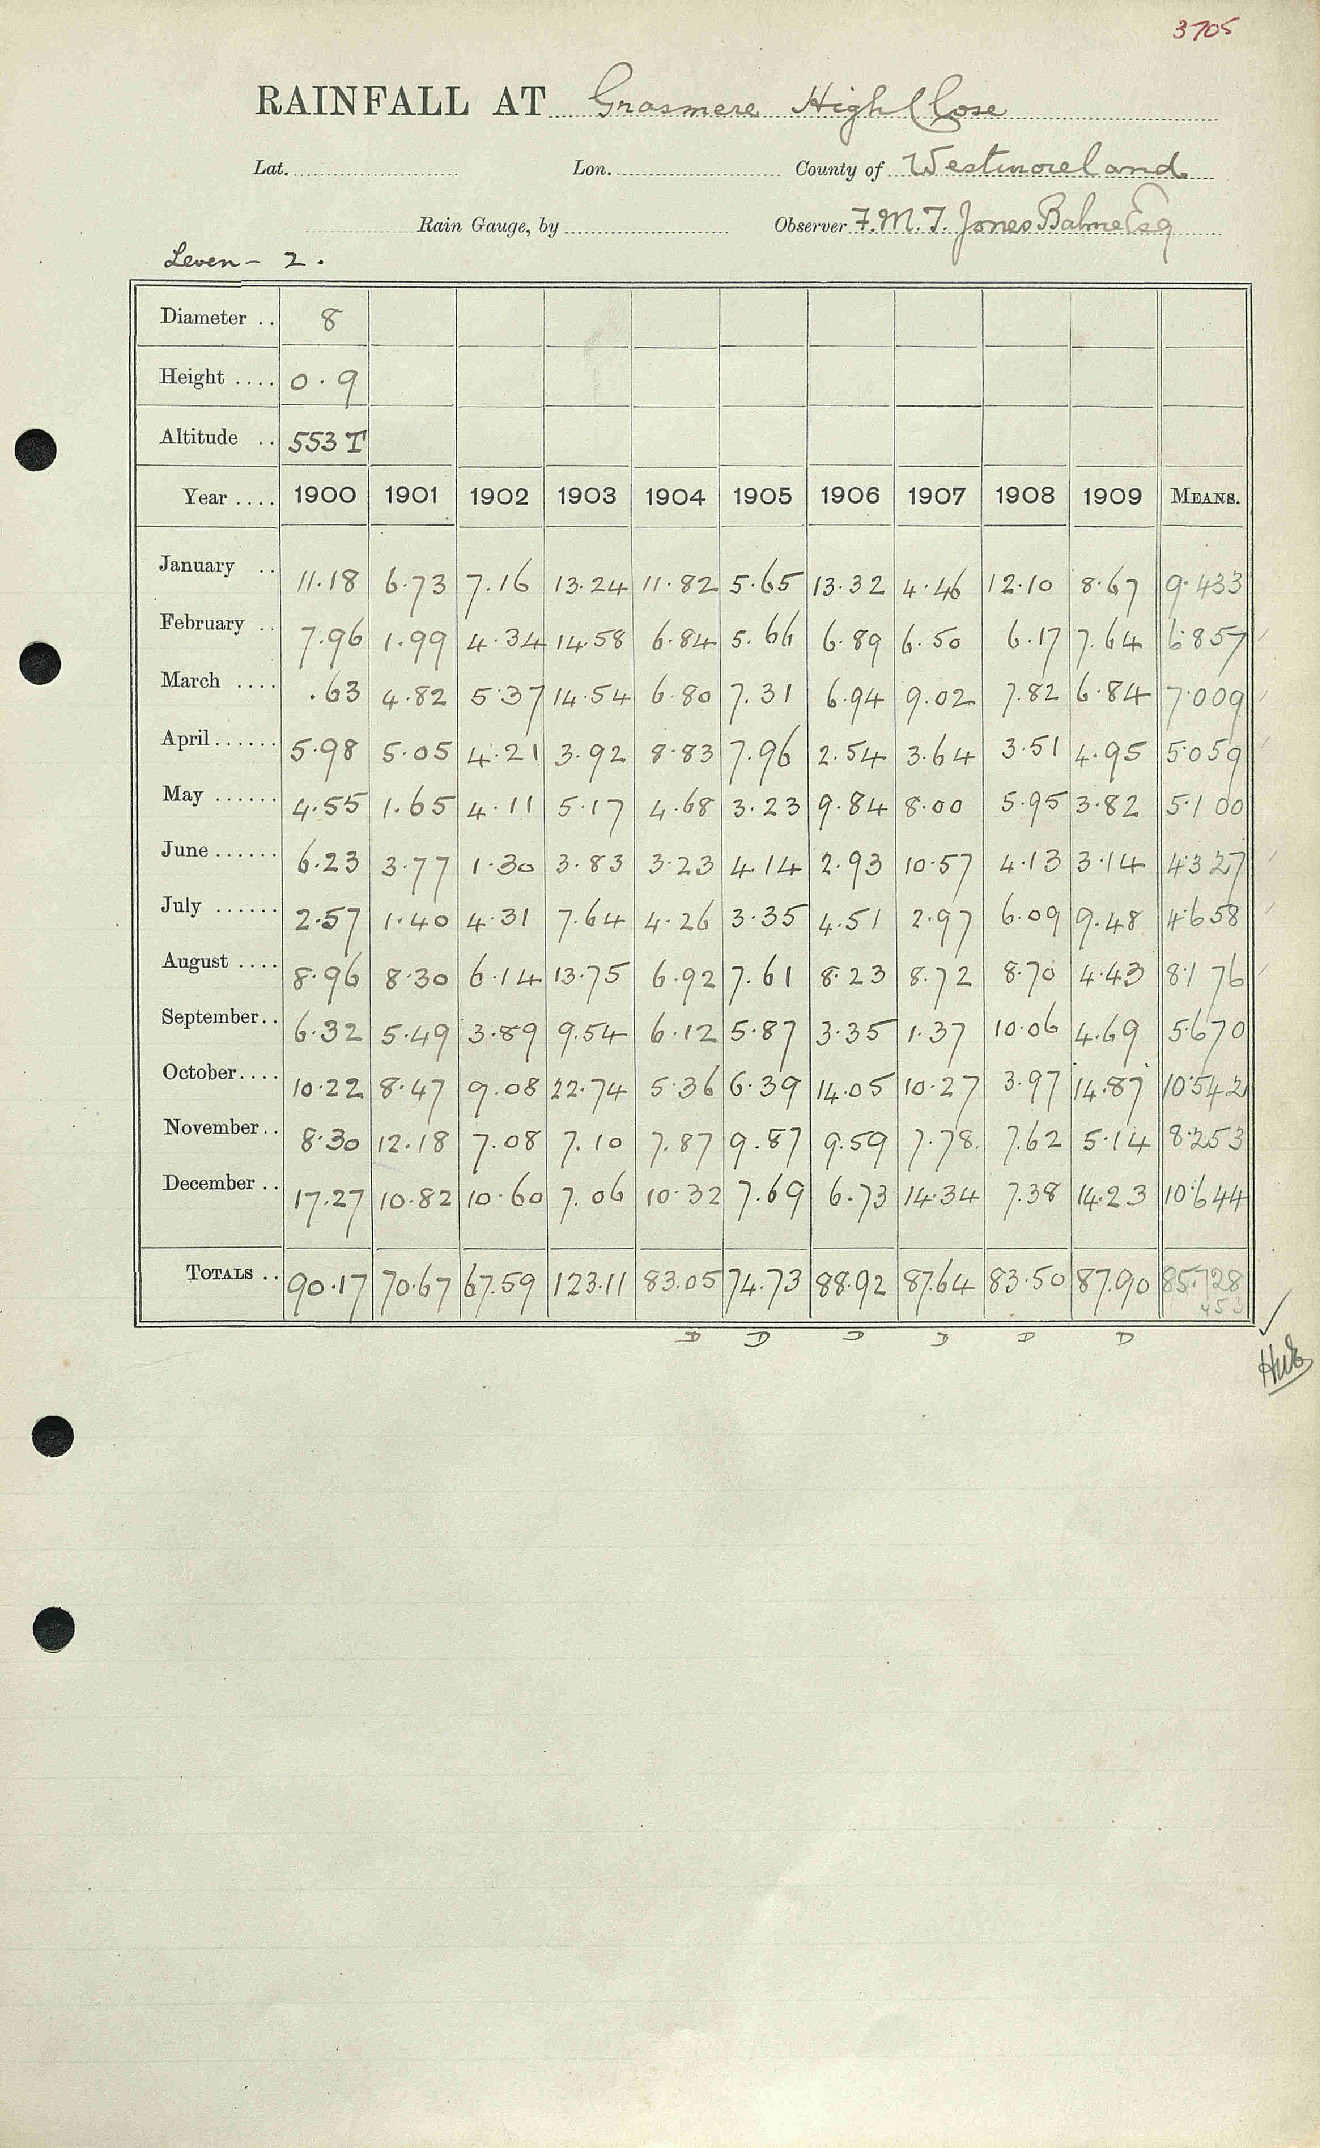 3705
RAINFALL AT Grasmere High Close
Lat. Lon. County of Westmoreland
Rain Gauge, by Observer F.M.T. Jones Balme Esq
Leven - 2.
Diameter .. 8
Height .... 0.9
Altitude .. 553 T
Year .... 1900 1901 1902 1903 1904 1905 1906 1907 1908 1909 MEANS.
January .. 11.18 6.73 7.16 13.24 11.82 5.65 13.32 4.46 12.10 8.67 9.433
February .. 7.96 1.99 4.34 14.58 6.84 5.66 6.89 6.50 6.17 7.64 6.857
March .... .63 4.82 5.37 14.54 6.80 7.31 6.94 9.02 7.82 6.84 7.009
April ...... 5.98 5.05 4.21 3.92 8.83 7.96 2.54 3.64 3.51 4.95 5.059
May ...... 4.55 1.65 4.11 5.17 4.68 3.23 9.84 8.00 5.95 3.82 5.100
June ...... 6.23 3.77 1.30 3.83 3.23 4.14 2.93 10.57 4.13 3.14 4.327
July ...... 2.57 1.40 4.31 7.64 4.26 3.35 4.51 2.97 6.09 9.48 4.658
August .... 8.96 8.30 6.14 13.75 6.92 7.61 8.23 8.72 8.70 4.43 8.176
September .. 6.32 5.49 3.89 9.54 6.12 5.87 3.35 1.37 10.06 4.69 5.670
October .... 10.22 8.47 9.08 22.74 5.36 6.39 14.05 10.27 3.97 14.87 10.542
November .. 8.30 12.18 7.08 7.10 7.87 9.87 9.59 7.78 7.62 5.14 8.253
December .. 17.27 10.82 10.60 7.06 10.32 7.69 6.73 14.34 7.38 14.23 10.644
TOTALS .. 90.17 70.67 67.59 123.11 83.05 74.73 88.92 87.64 83.50 87.90 85.728
D D D D D D